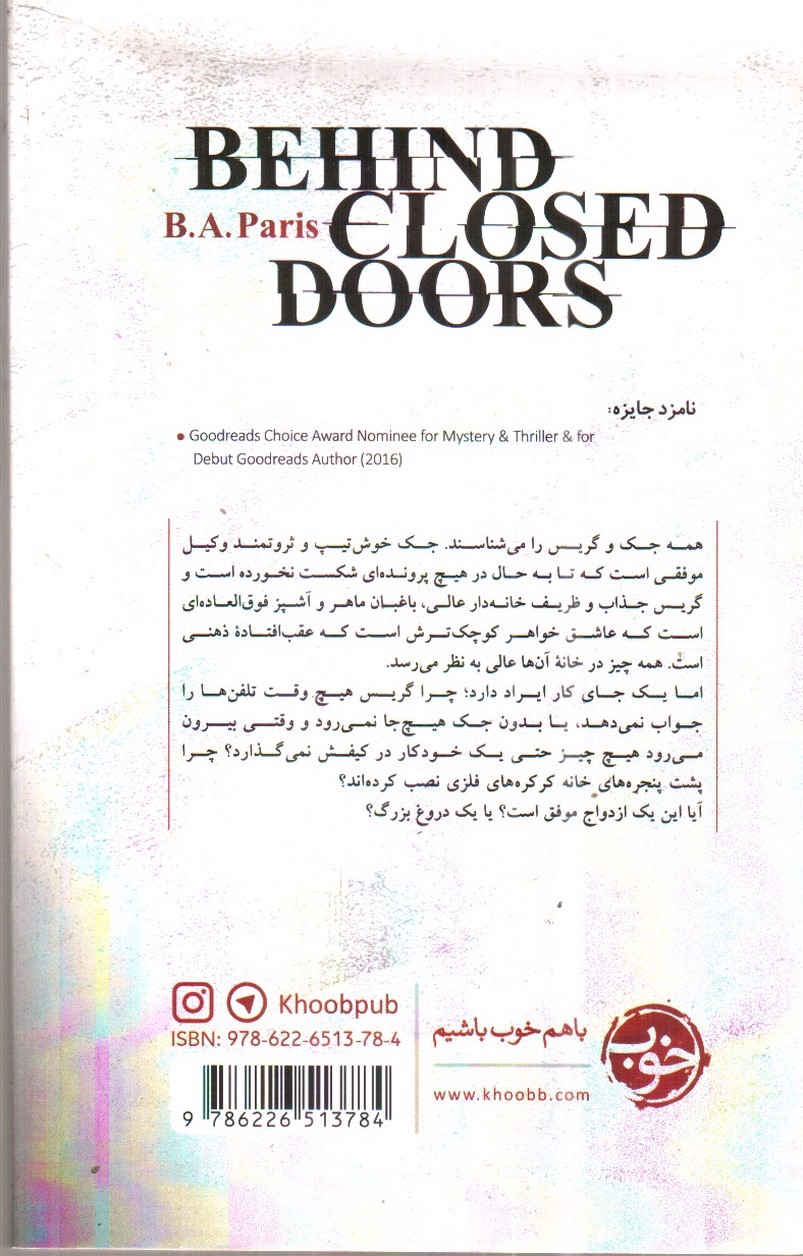 BEHIND
B.A. Paris CLOSED
DOORS
نامزد جایزه:
• Goodreads Choice Award Nominee for Mystery & Thriller & for
Debut Goodreads Author (2016)
همه جک و گریس را می‌شناسند. جک خوش‌تیپ و ثروتمند وکیل
موفقی است که تا به حال در هیچ پرونده‌ای شکست نخورده است و
گریس جذاب و ظریف خانه‌دار عالی، باغبان ماهر و آشپز فوق‌العاده‌ای
است که عاشق خواهر کوچک‌ترش است که عقب‌افتادهٔ ذهنی
است. همه چیز در خانهٔ آن‌ها عالی به نظر می‌رسد.
اما یک جای کار ایراد دارد؛ چرا گریس هیچ وقت تلفن‌ها را
جواب نمی‌دهد، یا بدون جک هیچ‌جا نمی‌رود و وقتی بیرون
می‌رود هیچ چیز حتی یک خودکار در کیفش نمی‌گذارد؟ چرا
پشت پنجره‌های خانه کرکره‌های فلزی نصب کرده‌اند؟
آیا این یک ازدواج موفق است؟ یا یک دروغ بزرگ؟
Khoobpub
ISBN: 978-622-6513-78-4
9 786226 513784
باهم خوب باشیم
www.khoobb.com
خوب